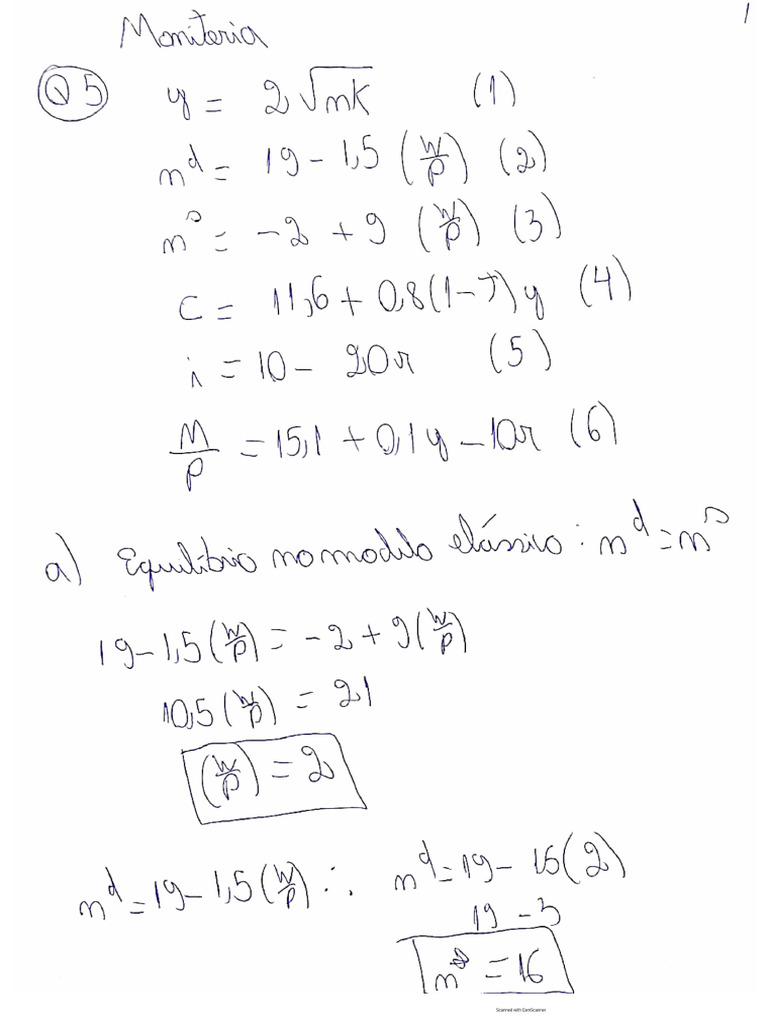 1
Moniteria
Q5 y = 2√nK (1)
n^d = 19 - 1,5 (W/P) (2)
n^s = -2 + 9 (W/P) (3)
C = 11,6 + 0,8(1-T)y (4)
i = 10 - 20r (5)
M/P = 15,1 + 0,1y - 10r (6)
a) Equilíbrio no modelo clássico: n^d = n^s
19 - 1,5(W/P) = -2 + 9(W/P)
10,5(W/P) = 21
(W/P) = 2
n^d = 19 - 1,5(W/P) ∴ n^d = 19 - 1,5(2)
19 - 3
n = 16
Scanned with CamScanner